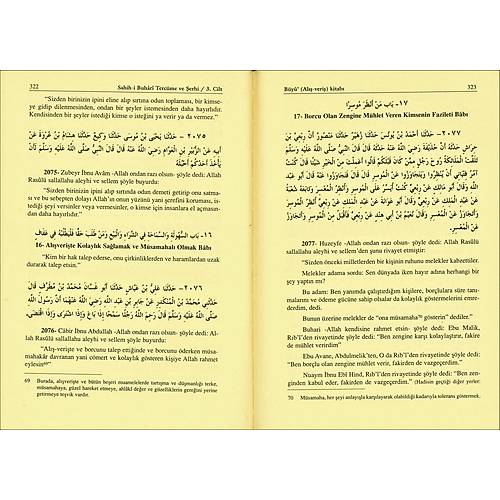 322 Sahih-i Buhârî Tercüme ve Şerhi / 3. Cilt
"Sizden birinizin ipini eline alıp sırtına odun toplaması, bir kimse-
ye gidip dilenmesinden, ondan bir şeyler istemesinden daha hayırlıdır.
Kendisinden bir şeyler istediği kimse o isteğini ya verir ya da vermez."
٢٠٧٥ – حَدَّثَنَا يَحْيَى بْنُ مُوسَى حَدَّثَنَا وَكِيعٌ حَدَّثَنَا هِشَامُ بْنُ عُرْوَةَ عَنْ
أَبِيهِ عَنِ الزُّبَيْرِ بْنِ الْعَوَّامِ رَضِيَ اللَّهُ عَنْهُ قَالَ قَالَ النَّبِيُّ صَلَّى اللَّهُ عَلَيْهِ وَسَلَّمَ لَأَنْ
يَأْخُذَ أَحَدُكُمْ أَحْبُلَهُ
2075- Zubeyr İbnu Avâm -Allah ondan razı olsun- şöyle dedi: Allah
Rasûlü sallallahu aleyhi ve sellem şöyle buyurdu:
"Sizden birinizin ipini alıp sırtına odun demeti getirip onu satma-
sı ve bu sebepten dolayı Allah'ın onun yüzünü yani şerefini koruması, is-
tediği şeyi versinler veya vermesinler, o kimse için insanlara el açmasın-
dan daha hayırlıdır."
١٦– بَاب السُّهُولَةِ وَالسَّمَاحَةِ فِي الشِّرَاءِ وَالْبَيْعِ وَمَنْ طَلَبَ حَقًّا فَلْيَطْلُبْهُ فِي عَفَافٍ
16- Alışverişte Kolaylık Sağlamak ve Müsamahalı Olmak Bâbı
"Kim bir hak talep ederse, onu çirkinliklerden ve haramlardan uzak
durarak talep etsin."
٢٠٧٦ – حَدَّثَنَا عَلِيُّ بْنُ عَيَّاشٍ حَدَّثَنَا أَبُو غَسَّانَ مُحَمَّدُ بْنُ مُطَرِّفٍ قَالَ
حَدَّثَنِي مُحَمَّدُ بْنُ الْمُنْكَدِرِ عَنْ جَابِرِ بْنِ عَبْدِ اللَّهِ رَضِيَ اللَّهُ عَنْهُمَا أَنَّ رَسُولَ اللَّهِ
صَلَّى اللَّهُ عَلَيْهِ وَسَلَّمَ قَالَ رَحِمَ اللَّهُ رَجُلًا سَمْحًا إِذَا بَاعَ وَإِذَا اشْتَرَى وَإِذَا اقْتَضَى
2076- Câbir İbnu Abdullah -Allah ondan razı olsun- şöyle dedi: Al-
lah Rasûlü sallallahu aleyhi ve sellem şöyle buyurdu:
"Alışverişte ve borcunu talep ettiğinde ve borcunu öderken müsa-
mahakâr davranan yani cömert ve kolaylık gösteren kişiye Allah rahmet
eylesin⁶⁹"
69 Burada, alışverişte ve bütün beşerî muamelelerde tartışma ve düşmanlığı terke,
müsamahaya, güzel hareket etmeye, ahlâkî değer ve güzelliklerin gereğini yerine
getirmeye teşvik vardır.
Büyû' (Alış-veriş) kitabı 323
١٧– بَاب مَنْ أَنْظَرَ مُوسِرًا
17- Borcu Olan Zengine Mühlet Veren Kimsenin Fazileti Bâbı
2077- Huzeyfe -Allah ondan razı olsun- şöyle dedi: Allah Rasûlü
sallallahu aleyhi ve sellem'den şunu rivayet etmiştir:
"Sizden önceki milletlerden bir kişinin ruhunu melekler kabzettiler.
Melekler adama sordu: Sen dünyada iken hayır adına herhangi bir
şey yaptın mı?
Bu adam: Ben yanımda çalıştırdığım kişilere, borçlulara süre tanı-
malarını ve ödeme gücüne sahip olsalar da kolaylık göstermelerini emre-
derdim, dedi.
Bunun üzerine melekler de "ona müsamaha⁷⁰ gösterin" dediler."
Buhari -Allah kendisine rahmet etsin- şöyle dedi: Ebu Malik,
Rıb'î'den rivayetinde şöyle dedi: "Ben zengine karşı kolaylaştırır, fakire
de mühlet verirdim"
Ebu Avane, Abdulmelik'ten, O da Rıb'î'den rivayetinde şöyle dedi:
"Ben borçlu olan zengine mühlet verir, fakirden de vazgeçerdim."
Nuaym İbnu Ebî Hind, Rıb'î'den rivayetinde şöyle dedi: "Ben zen-
ginden kabul eder, fakirden de vazgeçerdim." (Hadisin geçtiği diğer yerler:
70 Müsamaha, her şeyi anlayışla karşılayarak olabildiği kadarıyla tolerans göstermek.